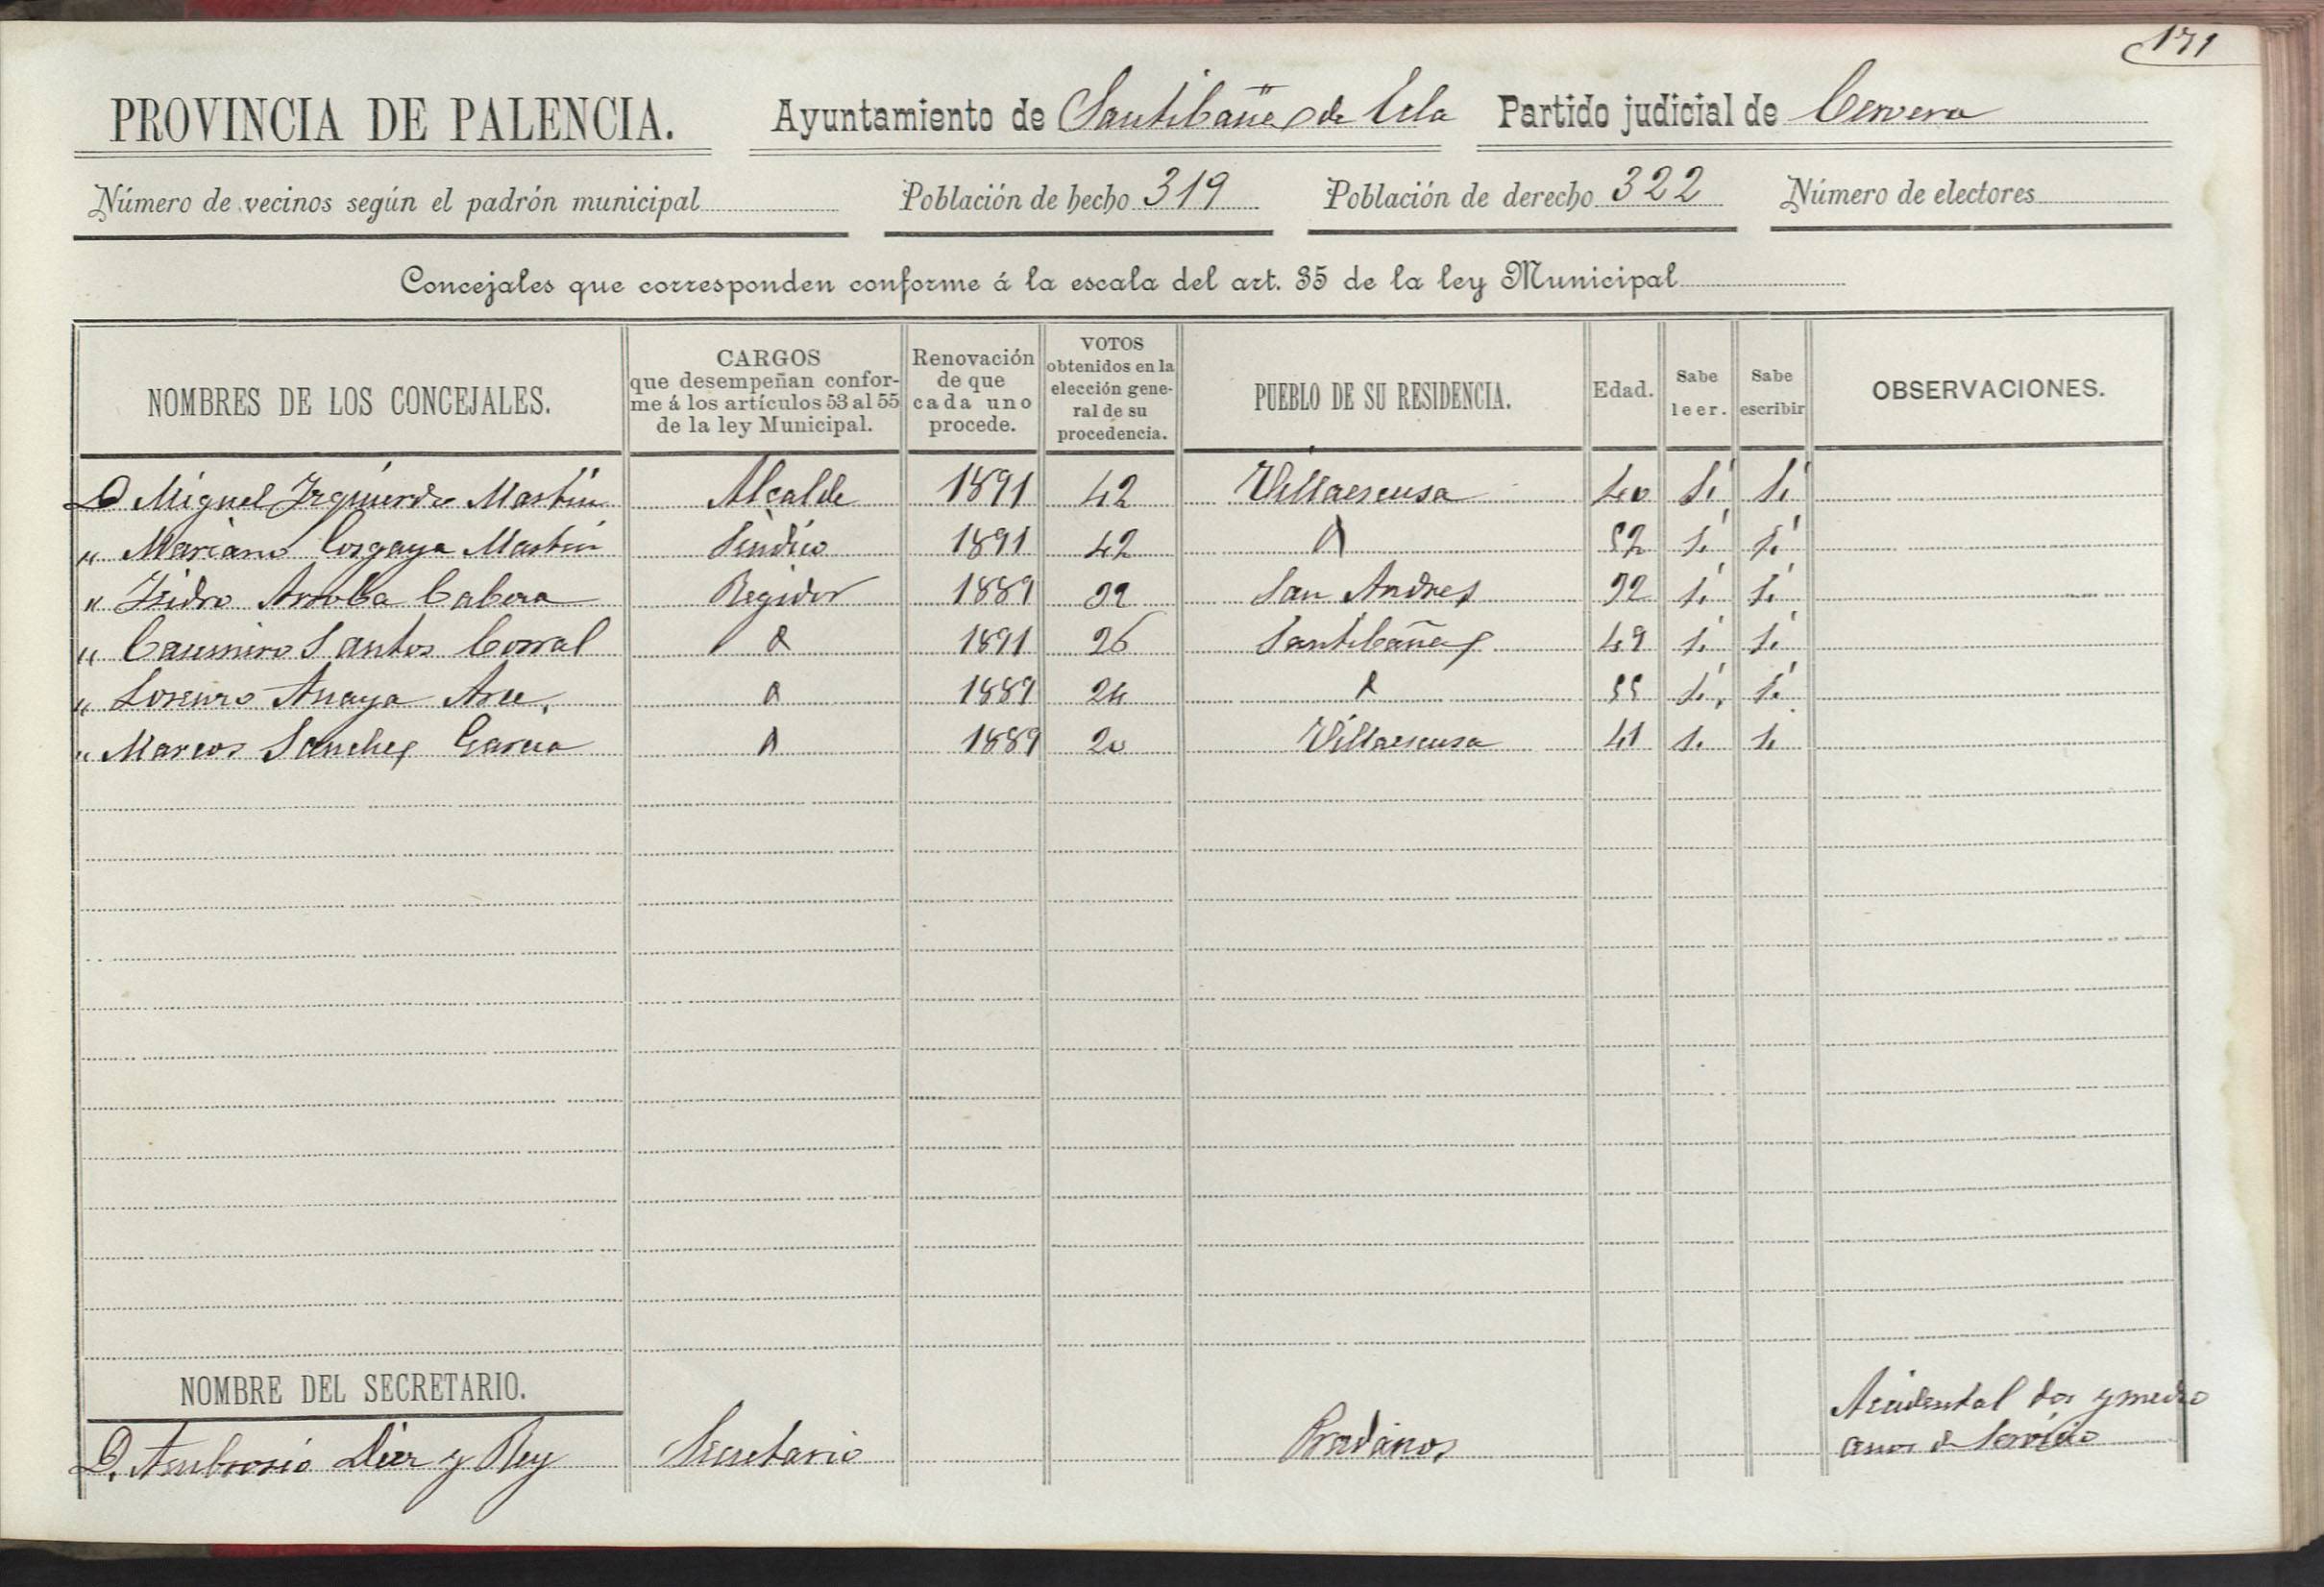 171
PROVINCIA DE PALENCIA. Ayuntamiento de Santibañez de Ecla Partido judicial de Cervera
Número de vecinos según el padrón municipal Población de hecho 319 Población de derecho 322 Número de electores
Concejales que corresponden conforme á la escala del art. 35 de la ley Municipal
NOMBRES DE LOS CONCEJALES. CARGOS que desempeñan conforme á los artículos 53 al 55 de la ley Municipal. Renovación de que cada uno procede. VOTOS obtenidos en la elección general de su procedencia. PUEBLO DE SU RESIDENCIA. Edad. Sabe leer. Sabe escribir OBSERVACIONES.
D Miguel Izquierdo Martin Alcalde 1891 42 Villaescusa 40 Si Si
" Mariano Cosgaya Martin Sindico 1891 42 52 Si Si
" Isidro Arroba Cabera Regidor 1889 San Andres Si Si
" Casimiro Santos Corral 1891 26 Santibañez 49 Si Si
" Lorenzo Anaya Arce. 1889 24 55 Si Si
" Marcos Sanchez Garcia 1889 20 Villaescusa 41 Si Si
NOMBRE DEL SECRETARIO.
D. Ambrosio Diez y Rey Secretario Pradanos Accidental dos y medio
anos de Servicio